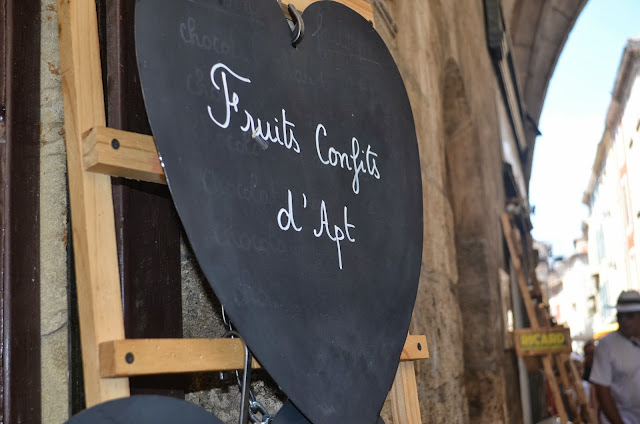 Fruits Confits
d'Apt
RICARD